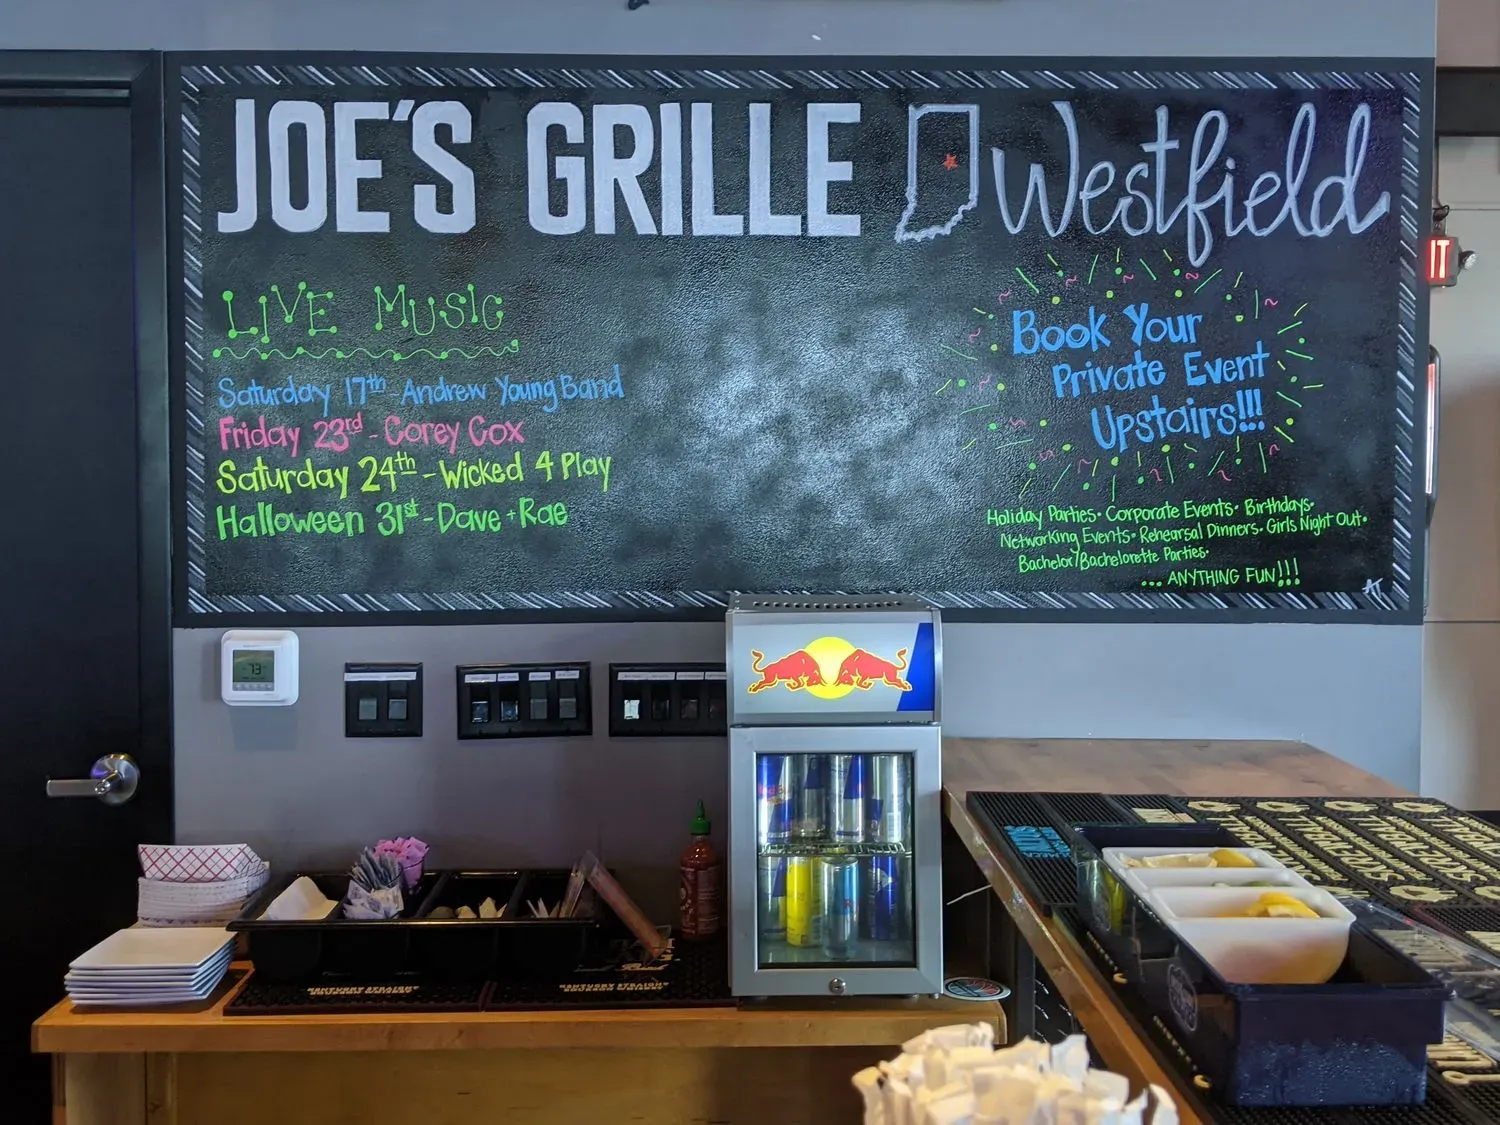 JOE'S GRILLE Westfield
LIVE MUSIC
Saturday 17th - Andrew Young Band
Friday 23rd - Corey Cox
Saturday 24th - Wicked 4 Play
Halloween 31st - Dave + Rae
Book Your
Private Event
Upstairs!!!
Holiday Parties • Corporate Events • Birthdays •
Networking Events • Rehearsal Dinners • Girls Night Out •
Bachelor/Bachelorette Parties •
... ANYTHING FUN!!!
AT
IT
73
KENTUCKY STRAIGHT
KENTUCKY STRAIGHT